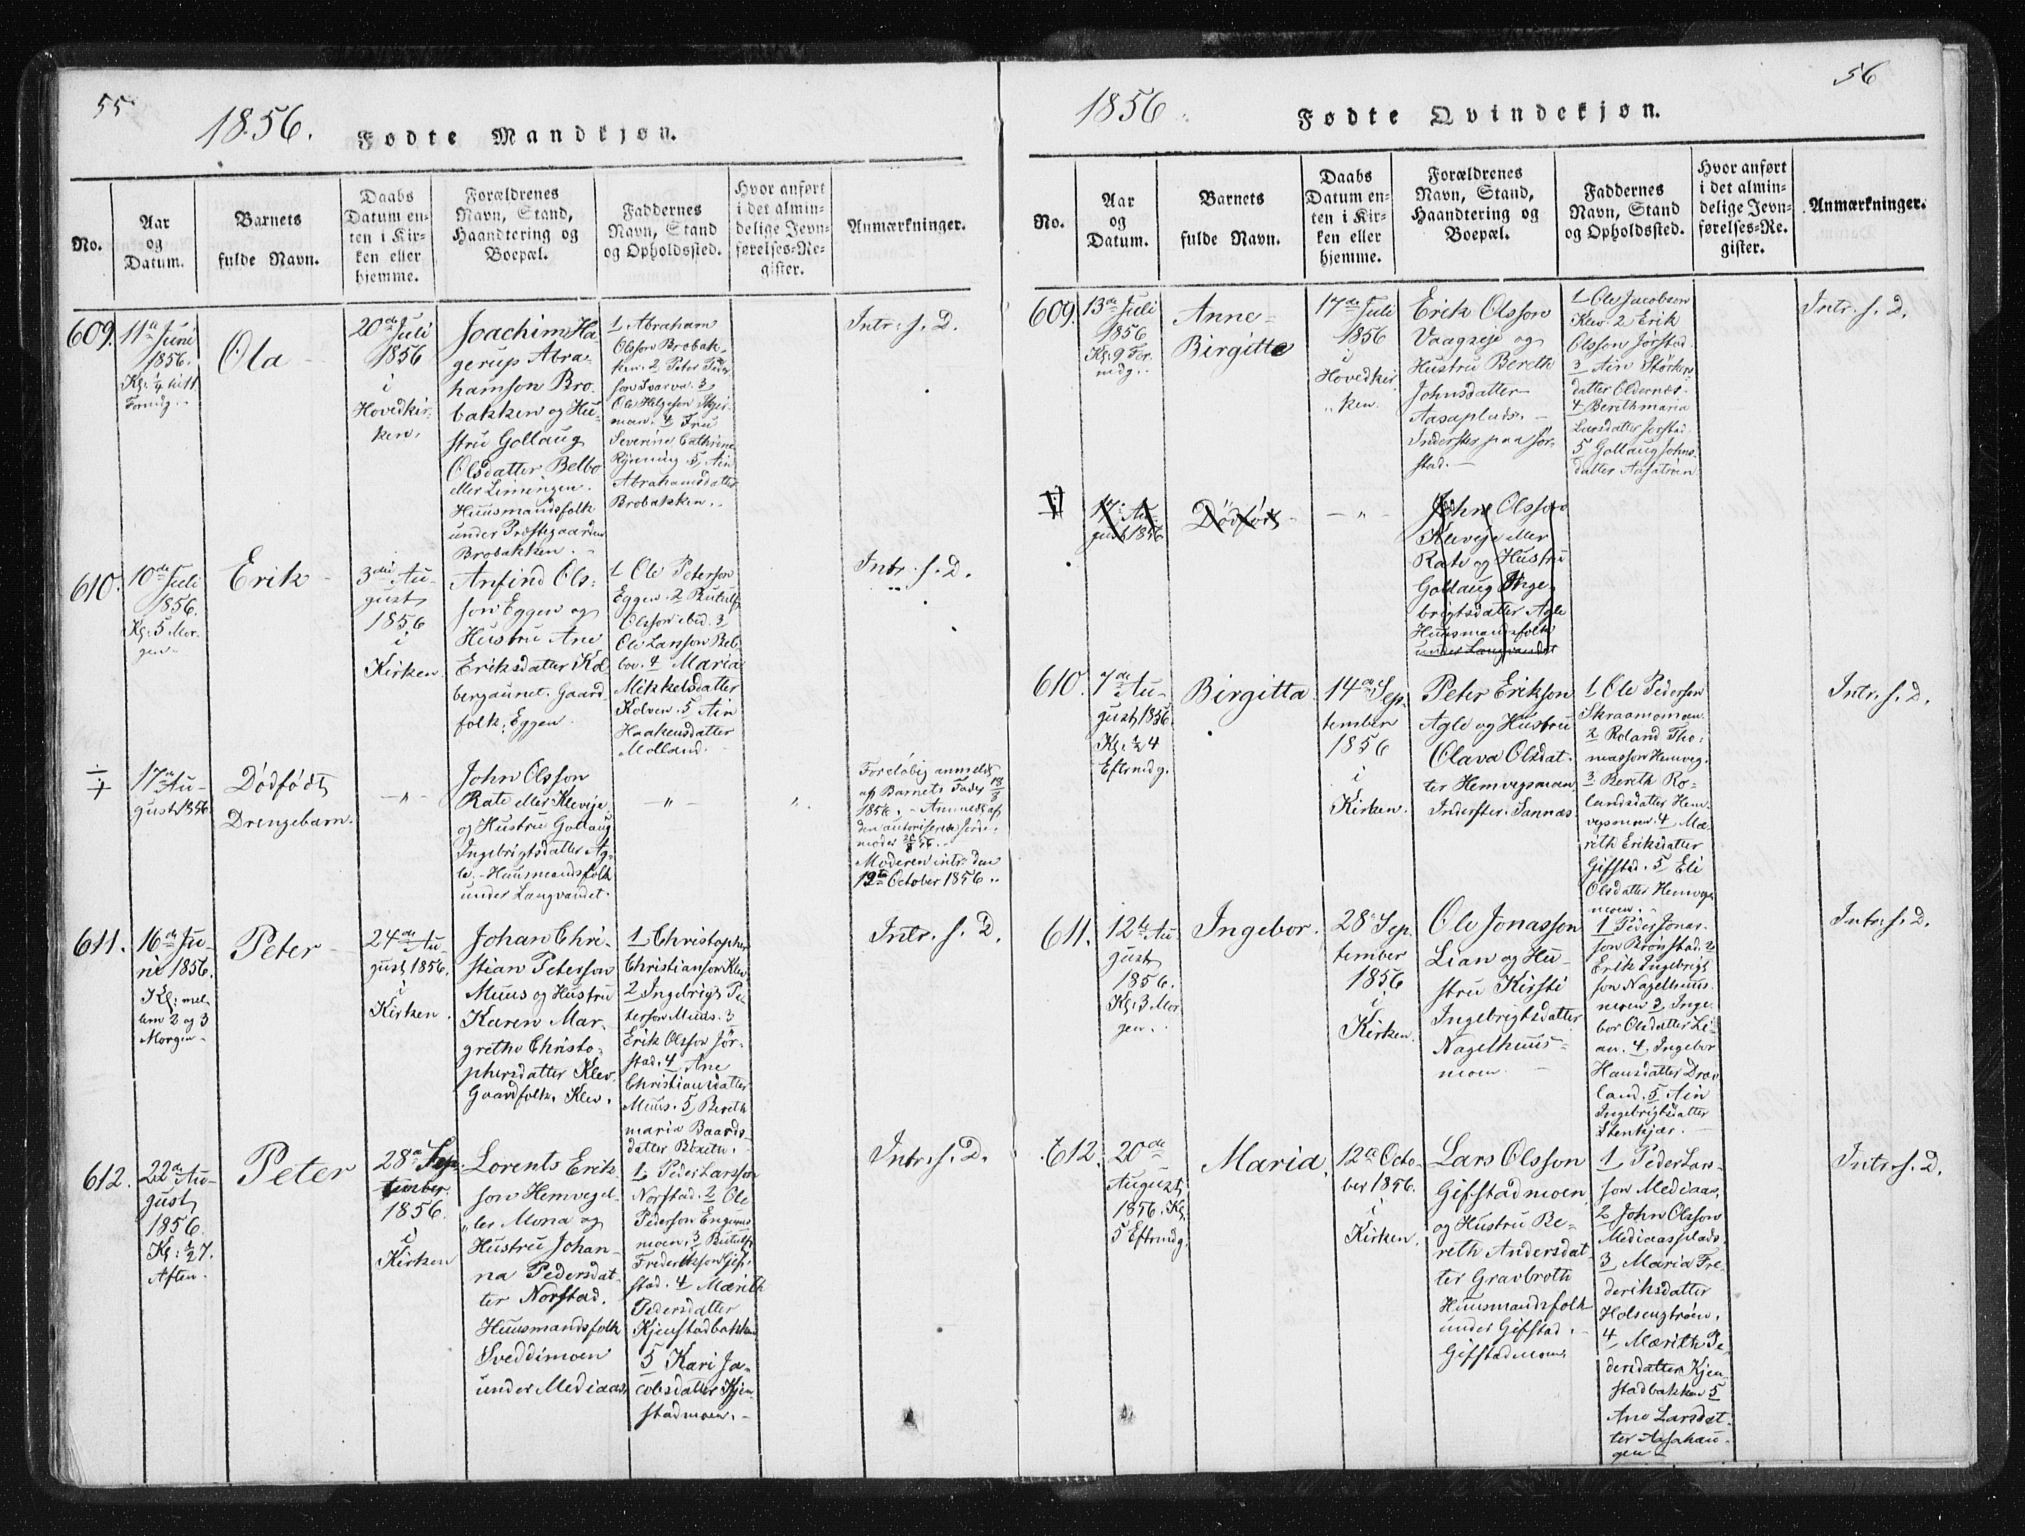 55
1856.
Fødte Mandkjøn.
No.
Aar
og
Datum.
Barnets
fulde Navn.
Daabs
Datum en-
ten i Kir-
ken eller
hjemme.
Forældrenes
Navn, Stand,
Haandtering og
Boepæl.
Faddernes
Navn, Stand
og Opholdssted.
Hvor anført
i det almin-
delige Jevn-
førelses-Re-
gister.
Anmærkninger.
609.
11te Juni
1856.
Kl: 1/4 till
Formdg.
Ola
20de Juli
1856
i
Hovedkir-
ken.
Joachim Ha-
gerup Abra-
hamson Bro-
bakken og Hu-
stru Gollaug
Olsdatter Belbo
eller Limingen.
Huusmandsfolk
under Præstegaarden
Brobakken.
1 Abraham
Olsson Brobak-
ken. 2 Peter Peder-
son Svarva. 3
Ole Helgeson
4 Fru
Severine Cathrine
5 Ain
Abrahamsdatter
Brobakken.
Intr. s. D.
610.
10de Juli
1856.
Kl: 5 Mor-
gen
Erik
3die Au-
gust
1856
i
Kirken
Anfind Ols-
son Eggen og
Hustru Ane
Eriksdatter Kol-
bergaunet. Gaard-
folk, Eggen.
1 Ole Peterson
Eggen. 2 Rutulf
Olsson ibid. 3
Ole Larsson Bel-
bo. 4 Maria
Mikkelsdatter
Kolven. 5 Ain
Haakensdatter
Molland.
Intr. s. D.
÷
17de Au-
gust 1856
Dødfødt
Drengebarn.
— " —
John Olsson
Rate eller Kleveje
og Hustru Gollaug
Ingebrigtsdatter Ag-
le. Huusmandsfolk
under Langvandet.
— " —
"
Foreløbig anmeldt
af Barnets Fader 18/8
1856. Anmeldt af
den autoriserede Jorde-
moder
Moderen intr: den
19de October 1856.
611.
16de Ju-
ni 1856.
Kl: mel-
lem 2 og 3
Morgen
Peter
24de Au-
gust 1856.
i
Kirken.
Johan Chri-
stian Peterson
Muus og Hustru
Karen Mar-
grethe Christo-
phersdatter Klev.
Gaardfolk. Klev.
1 Christopher
Christianson Klev
2 Ingebrigt Pe-
terson Muus. 3
Erik Olsson Jør-
stad. 4 Ane
Christiansdatter
Muus. 5 Bereth-
maria Baards-
datter
Intr. s. D.
612.
22de Au-
gust
1856.
Kl: 1/2 7.
Aften.
Peter
28de Sep-
tember
1856.
i
Kirken
Lorents Erik-
son Hemveg el-
ler Mona og
Hustru Johan-
na Pedersdat-
ter Norstad.
Huusmandsfolk
Sveddimoen
under Mediaas.
1 Peder Larsson
Norstad. 2 Ole
Pederson
moen. 3 Rutulf
Frederikson Gif-
stad. 4 Mærith
Pedersdatter
Kjenstadbakken
5 Kari Ja-
cobsdatter Kjen-
stadmoen.
Intr. s. D.
56
1856.
Fødte Qvindekjøn.
No.
Aar
og
Datum.
Barnets
fulde Navn.
Daabs
Datum en-
ten i Kir-
ken eller
hjemme.
Forældrenes
Navn, Stand,
Haandtering og
Boepæl.
Faddernes
Navn, Stand
og Opholdssted.
Hvor anført
i det almin-
delige Jevn-
førelses-Re-
gister.
Anmærkninger.
609.
13de Juli
1856
Kl: 9 For-
mdg.
Anne-
Birgitte
17de Juli
1856
i
Hovedkir-
ken.
Erik Olsson
Vaagseje og
Hustru Bereth
Johnsdatter
Aasaplads.
Inderster paa Jør-
stad.
1 Ole Jacobson
Klev. 2 Erik
Olsson Jørstad.
3 Ain Størkers-
datter Oldernæs.
4 Berethmaria
Larsdatter Jørstad.
5 Gollaug Johns-
datter
Intr. s. D.
17de Au-
gust 1856
Dødfødt
— " —
John Olsson
Kleveje eller
Rate og Hustru
Gollaug Inge-
brigtsdatter Agle
Huusmandsfolk
under Langvandet
610.
7de Au-
gust 1856
Kl: 1/2 4
Eftrmdg.
Birgitta
14de Sep-
tember
1856
i
Kirken.
Peter Erikson
Agle og Hustru
Olava Olsdat-
ter Hemvegsmoen
Inderster. Sannæs
1 Ole Pederson
Skraamomoen
2 Roland Tho-
masson Hemveg.
3 Bereth Ro-
landsdatter Hem-
vegsmoen. 4 Mæ-
rith Eriksdatter
Gifstad. 5 Eli
Olsdatter Hemvegs-
moen.
Intr. s. D.
611.
12te Au-
gust
1856.
Kl: 3 Mor-
gen.
Ingebor.
28de Sep-
tember
1856
i
Kirken.
Ole Jonasson
Lian og Hu-
stru Kirsti
Ingebrigtsdatter
Nagelhuus-
moen
1 Peder Jonas-
son Brønstad. 2
Erik Ingebrigt-
son Nagelhuus-
moen 3 Inge-
bor Olsdatter Li-
an. 4 Ingebor
Hansdatter Drav-
land. 5 Ain
Ingebrigtsdatter
Stenkjær.
Intr. s. D.
612.
20de
August
1856. Kl:
5 Eftrmdg.
Maria.
12te Octo-
ber 1856.
i
Kirken.
Lars Olsson
Gifstadmoen
og Hustru Be-
reth Andersdat-
ter Gravbroth
Huusmandsfolk
under Gifstad.
Gifstadmoen.
1 Peder Lars-
son Mediaas.
2 John Olsson
Mediaasplads.
3 Maria Fre-
deriksdatter
Holsengtrøen.
4 Mærith Pe-
dersdatter Kjen-
stadbakken 5
Ane Larsdat-
ter Aasahau-
gen
Intr. s. D.